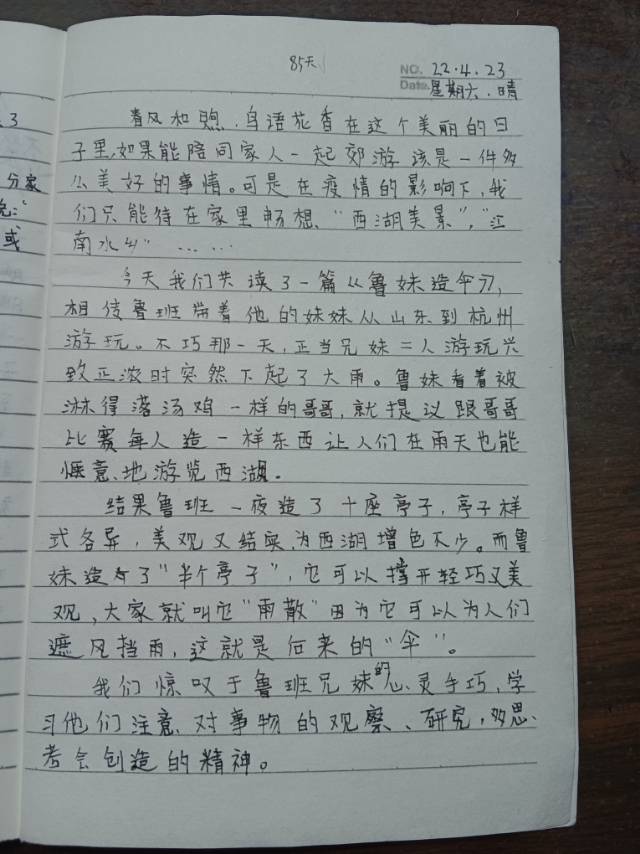 85天
NO. 22.4.23
Date. 星期六.晴
春风和煦.鸟语花香在这个美丽的日
子里,如果能陪同家人一起郊游该是一件多
么美好的事情。可是在疫情的影响下,我
们只能待在家里畅想、"西湖美景","江
南水乡"……
今天我们共读了一篇《鲁妹造伞》,
相传鲁班带着他的妹妹从山东到杭州
游玩。不巧那一天,正当兄妹二人游玩兴
致正浓时突然下起了大雨。鲁妹看着被
淋得落汤鸡一样的哥哥,就提议跟哥哥
比赛每人造一样东西让人们在雨天也能
惬意、地游览西湖.
结果鲁班一夜造了十座亭子,亭子样
式各异,美观又结实,为西湖增色不少。而鲁
妹造了"半个亭子",它可以撑开轻巧又美
观,大家就叫它"雨散"因为它可以为人们
遮风挡雨,这就是后来的"伞"。
我们惊叹于鲁班兄妹的心灵手巧,学
习他们注意、对事物的观察、研究,多思、
考会创造的精神。
3
分家
说:"
或